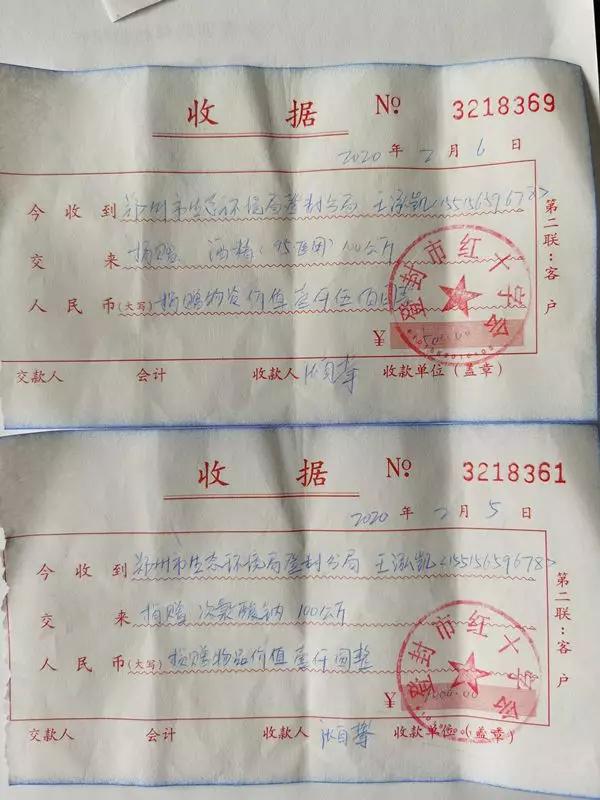 收据 № 3218369
2020 年 2 月 6 日
今收到 郑州市生态环境局登封分局 王泓凯<15515659678>
交来 捐赠 酒精(95医用) 100公斤
人民币(大写) 捐赠物资价值壹仟伍佰圆整
¥ 1500.00
登封市红十字会
交款人 会计 收款人 收款单位(盖章)
第二联:客户
收据 № 3218361
2020 年 2 月 5 日
今收到 郑州市生态环境局登封分局 王泓凯<15515659678>
交来 捐赠 次氯酸钠 100公斤
人民币(大写) 捐赠物品价值壹仟圆整
¥ 1000.00
登封市红十字会
交款人 会计 收款人 收款单位(盖章)
第二联:客户